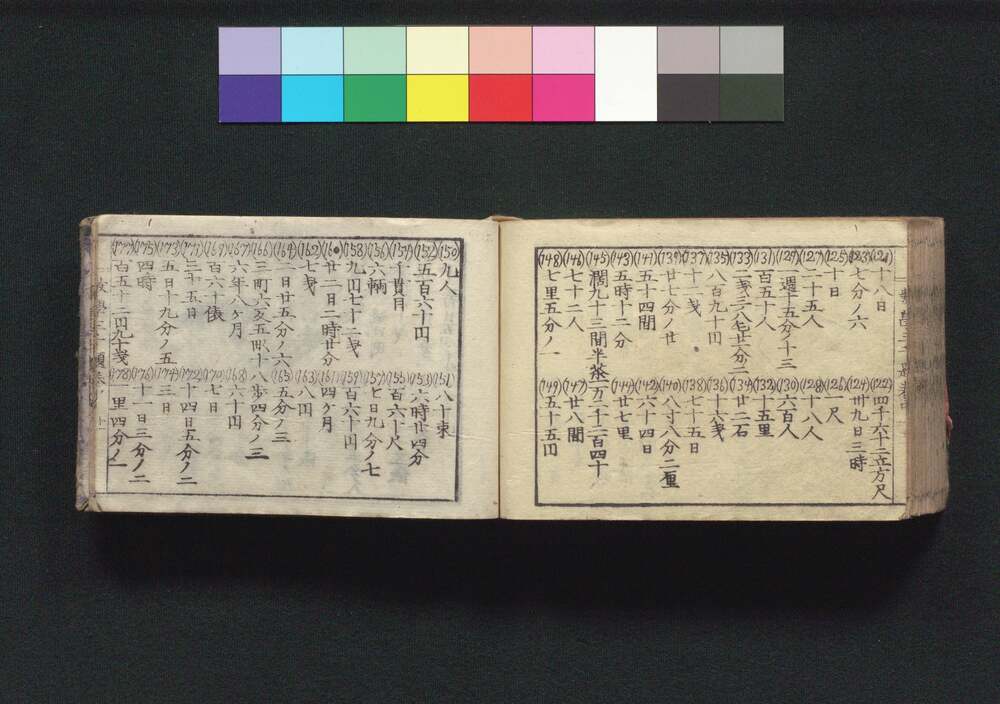 (121)十八日 (122)四千六十二立方尺
(123)七分ノ六 (124)卅九日三時
(125)十日 (126)一尺
(127)二十五人 (128)十八人
(129)還十五分ノ十三 (130)六百人
(131)百五十人 (132)十五里
(133) (134)廿二石
(135)八百九十円 (136)十六銭
(137)十一銭 (138)七十五日
(139)廿七分ノ廿 (140)八寸八分二厘
(141)五十四間 (142)六十四日
(143)五時十二分 (144)廿七里
(145)濶九十三間半 一万二千二百四十
(146)七十二人 (147)廿八間
(148)七里五分ノ一 (149)五十五円
(150)九人 (151)八十束
(152)五百六十円 (153)六時廿四分
(154)千貫目 (155)百六十尺
(156)六柄 (157)七日九分ノ七
(158)九円七十二銭 (159)百六十円
(160)廿一日二時廿分 (161)四ケ月
(162)七銭 (163)八円
(164)一日廿五分ノ六 (165)五分ノ三
(166)三町六畝五町十八歩四分ノ三
(167)六年八ケ月 (168)六十円
(169)百六十俵 (170)七日
(171)三十五日 (172)十四日五分ノ二
(173)五日十九分ノ五 (174)三日
(175)四時 (176)十一日三分ノ二
(177)百五十二円九十銭 (178)一里四分ノ一